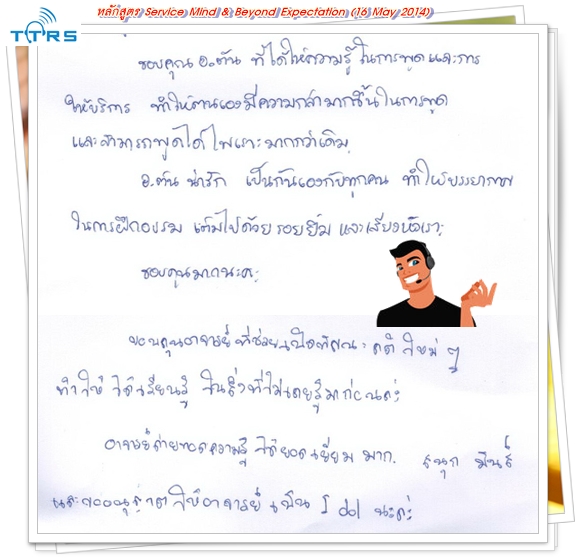 หลักสูตร Service Mind & Beyond Expectation (16 May 2014)
TTRS
ขอบคุณ อ.ตัน ที่ได้ให้ความรู้ ในการพูด และการ
ให้บริการ ทำให้ตนเองมีความกล้ามากขึ้นในการพูด
และสามารถพูดได้ไพเราะมากกว่าเดิม
อ.ตัน น่ารัก เป็นกันเองกับทุกคน ทำให้บรรยากาศ
ในการฝึกอบรม เต็มไปด้วย รอยยิ้ม และเสียงหัวเราะ
ขอบคุณมากนะคะ
ขอบคุณอาจารย์ ที่ช่วยเปิดทัศนะคติ ใหม่ ๆ
ทำให้ ได้เรียนรู้ ในสิ่งที่ไม่เคยรู้มาก่อนค่ะ
อาจารย์ถ่ายทอดความรู้ ได้ยอดเยี่ยม มาก. สนุก มันส์
และขออนุญาตให้อาจารย์ เป็น Idol นะค่ะ